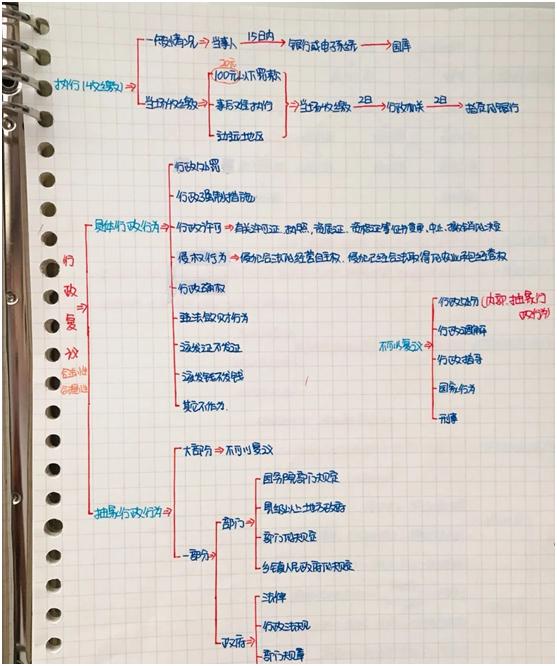 一般情况⇒当事人 15日内→ 银行或电子系统→国库
执行(收缴)⇒
20元
100元以下罚款
当场收缴⇒ 事后难执行 ⇒当场收缴 2日→ 行政机关 2日→ 指定的银行
边远地区
行政处罚
行政强制措施
具体行政行为⇒ 行政许可⇒有关许可证、执照、资质证、资格证等证书变更、中止、撤销的决定
侵权行为⇒侵犯合法的经营自主权、侵犯已经合法取得的农业承包经营权
行政确权
违法敛财行为
该发证不发证
该发钱不发钱
其它不作为.
行政复议⇒
合法性
合理性
行政处分(内部、抽象行政行为)
行政调解
不可以复议⇒ 行政指导
国家行为
刑事
大部分⇒不可以复议
抽象行政行为⇒
国务院部门规定
部门⇒ 县级以上土地方政府
部门的规定
一部分⇒
乡镇人民政府的规定
法律
行政法规
政府⇒
部门规章